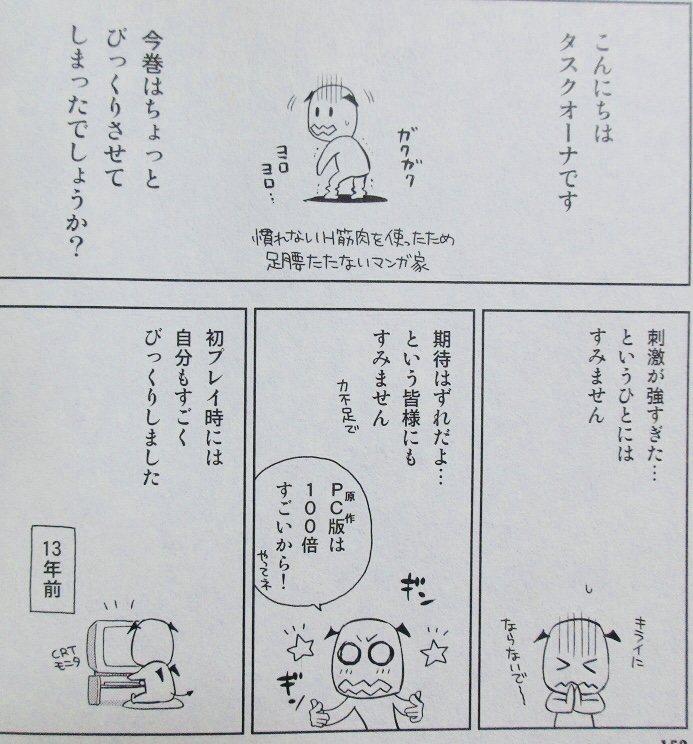 こんにちは
タスクオーナです
ガクガク
ヨロ
ヨロ…
慣れないH筋肉を使ったため
足腰たたないマンガ家
今巻はちょっと
びっくりさせて
しまったでしょうか?
刺激が強すぎた…
というひとには
すみません
キライに
ならないで〜
期待はずれだよ…
という皆様にも
すみません
力不足で
原作
PC版は
100倍
すごいから!
やってネ
ギン
ギン
初プレイ時には
自分もすごく
びっくりしました
13年前
CRT
モニタ